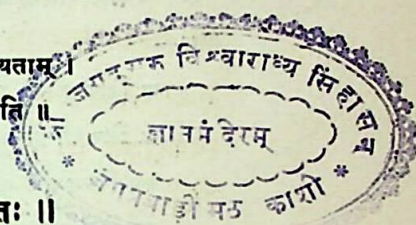 यताम् ।
ति ॥
जगद्गुरु विश्वाराध्य सिंहासन
ज्ञानमंदिरम्
* जंगमवाड़ी मठ काशी *
तः ॥